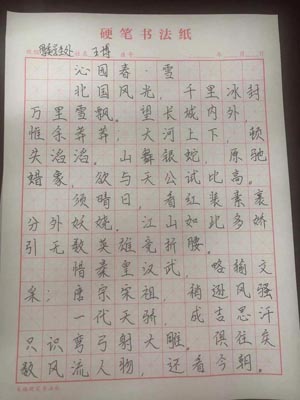 硬笔书法纸
王博
沁园春·雪
北国风光，千里冰封
万里雪飘。望长城内外，
惟余莽莽；大河上下，顿
失滔滔。山舞银蛇，原驰
蜡象，欲与天公试比高。
须晴日，看红装素裹
分外妖娆。江山如此多娇
引无数英雄竞折腰。
惜秦皇汉武，略输文
采；唐宗宋祖，稍逊风骚
一代天骄，成吉思汗
只识弯弓射大雕。俱往矣
数风流人物，还看今朝。